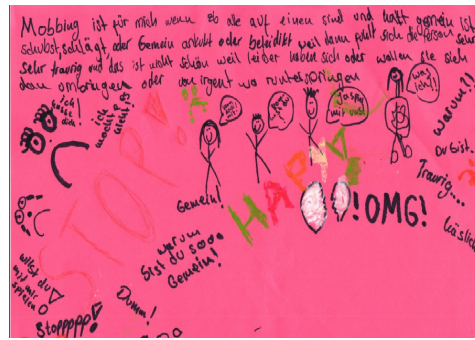 Mobbing ist für mich wenn es alle auf einen sind und halt gemein ist
schubst, schlägt, oder Gemein anguckt oder beleidikt weil dann fühlt sich die Person sehr
sehr traurig und das ist nicht schön weil leider haben sich oder wollen sie sich
dan umbringen oder von irgent wo runterspringen
ich
hasse
dich!
ich
möchte
nicht
STOP!
was
ich!!
warum!!
Du bist
Traurig...
hässlich
Gemein!
HAPPY
!OMG!
warum
bist du sooo
Gemein!
willst du
mit mir
spielen
Stoppppp!
Dumm!